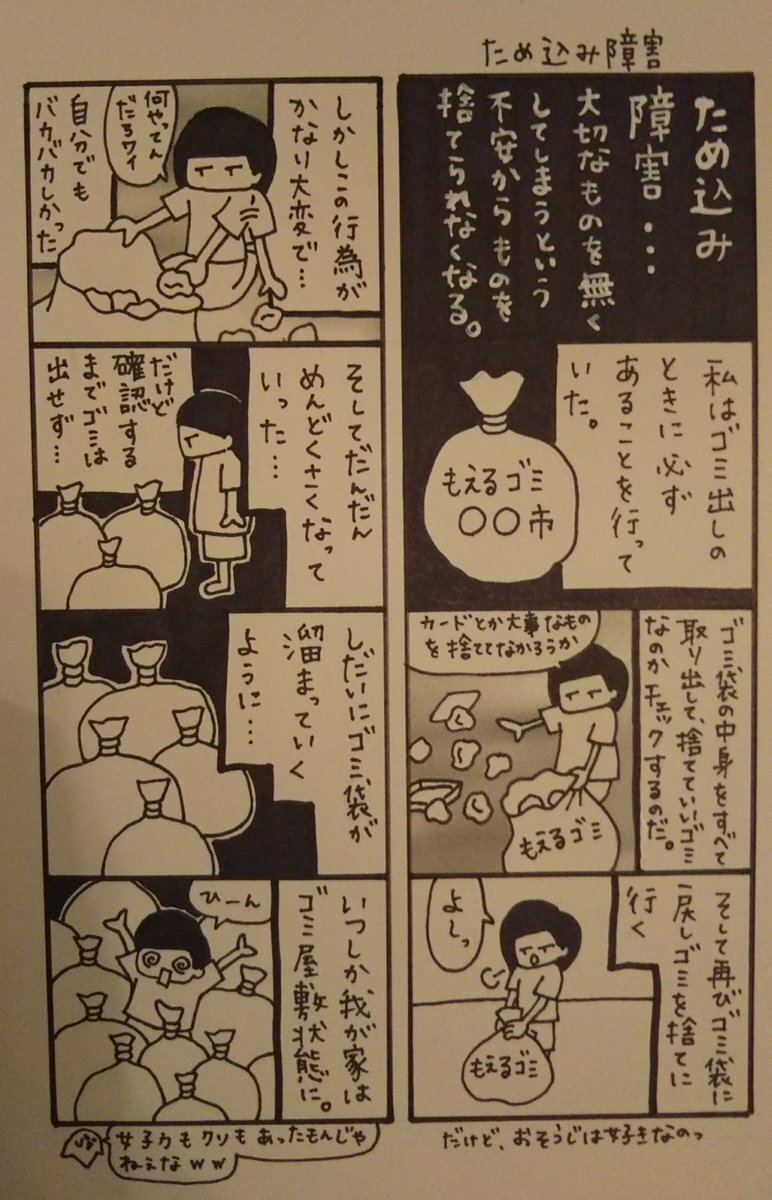 ため込み障害
ため込み
障害…
大切なものを無く
してしまうという
不安からものを
捨てられなくなる。
私はゴミ出しの
ときに必ず
あることを行って
いた。
もえるゴミ
〇〇市
ゴミ袋の中身をすべて
取り出して、捨てていいゴミ
なのかチェックするのだ。
カードとか大事なもの
を捨ててなかろうか
もえるゴミ
そして再びゴミ袋に
戻しゴミを捨てに
行く
よしっ
もえるゴミ
だけど、おそうじは好きなのっ
しかしこの行為が
かなり大変で…
何やってん
だろワイ
自分でも
バカバカしかった
そしてだんだん
めんどくさくなって
いった…
だけど
確認する
までゴミは
出せず…
しだいにゴミ袋が
溜まっていく
ように…
いつしか、我が家は
ゴミ屋敷状態に。
ひーん
女子力もクソもあったもんじゃ
ねぇなww